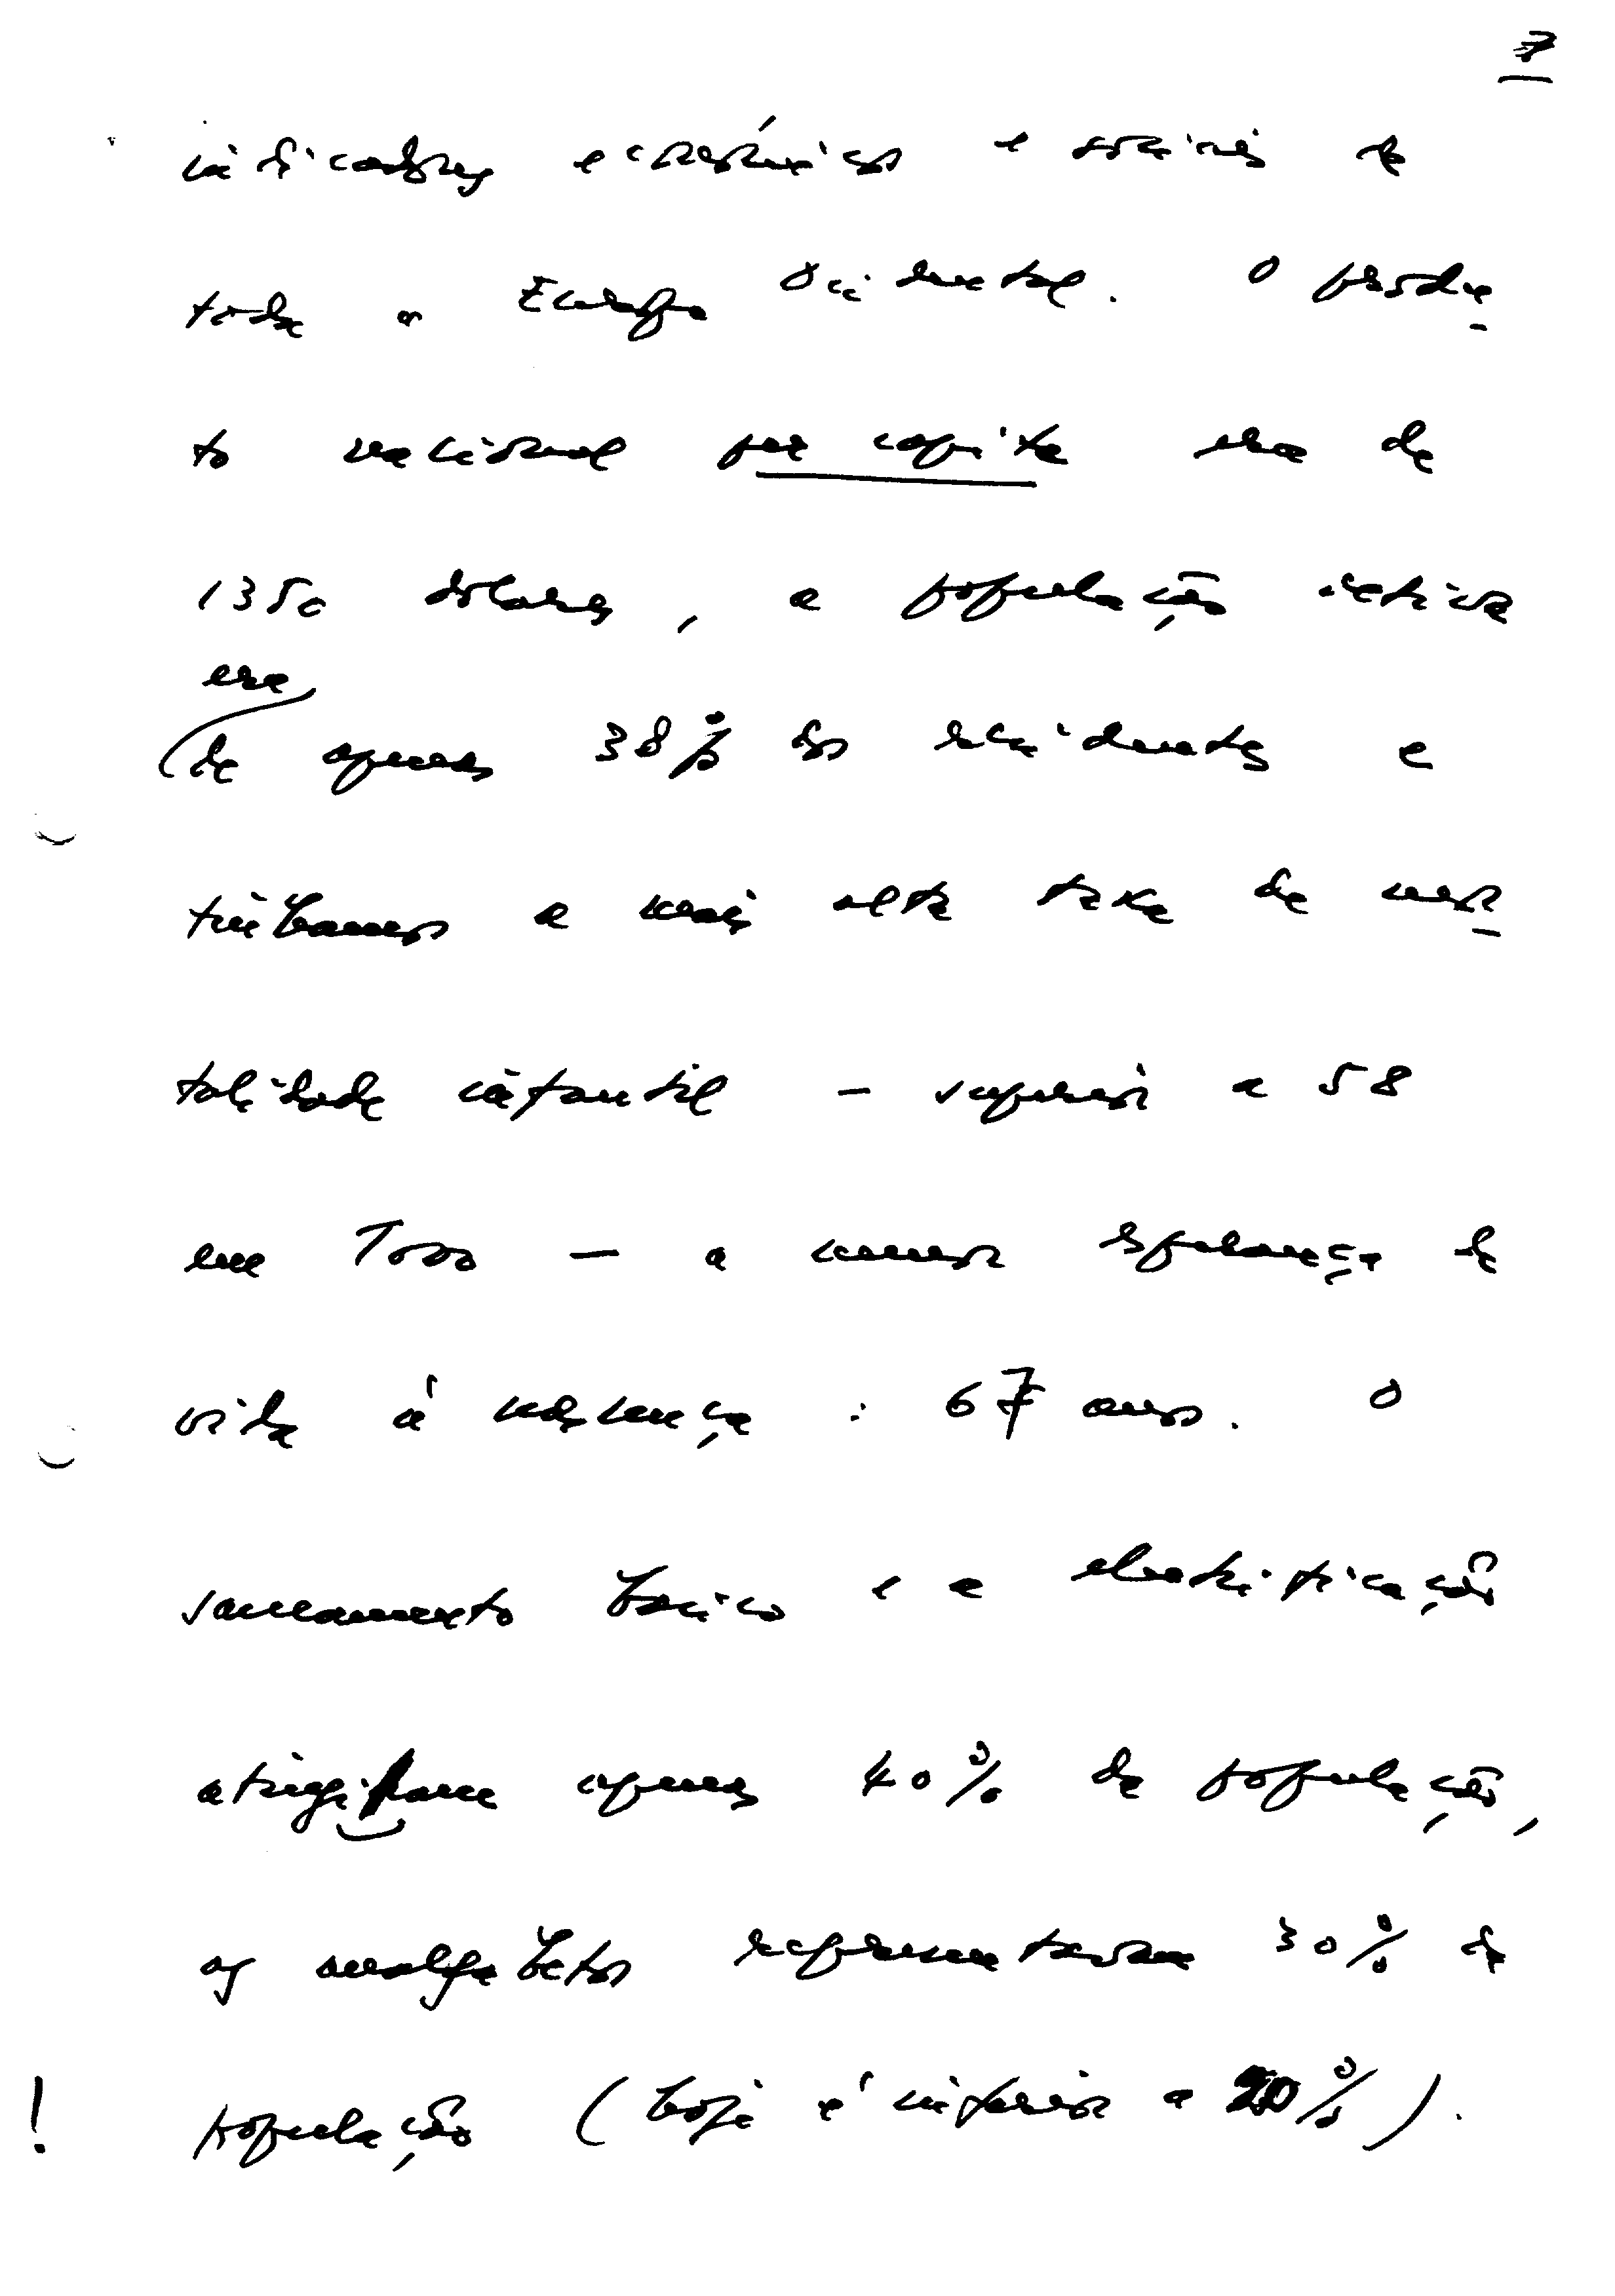 7
indicadores económicos e sociais de
toda a Europa Ocidental. O produ-
to nacional per capita era de
1350 dólares, a população activa
era
de apenas 38% dos residentes e
tínhamos a mais alta taxa de mor-
talidade infantil - superior a 58
em 1000 - a menor esperança de
vida à nascença : 67 anos. O
saneamento básico e a electrificação
atingiam apenas 40% da população,
os analfabetos representavam 30% da
! população (hoje é inferior a 20%).